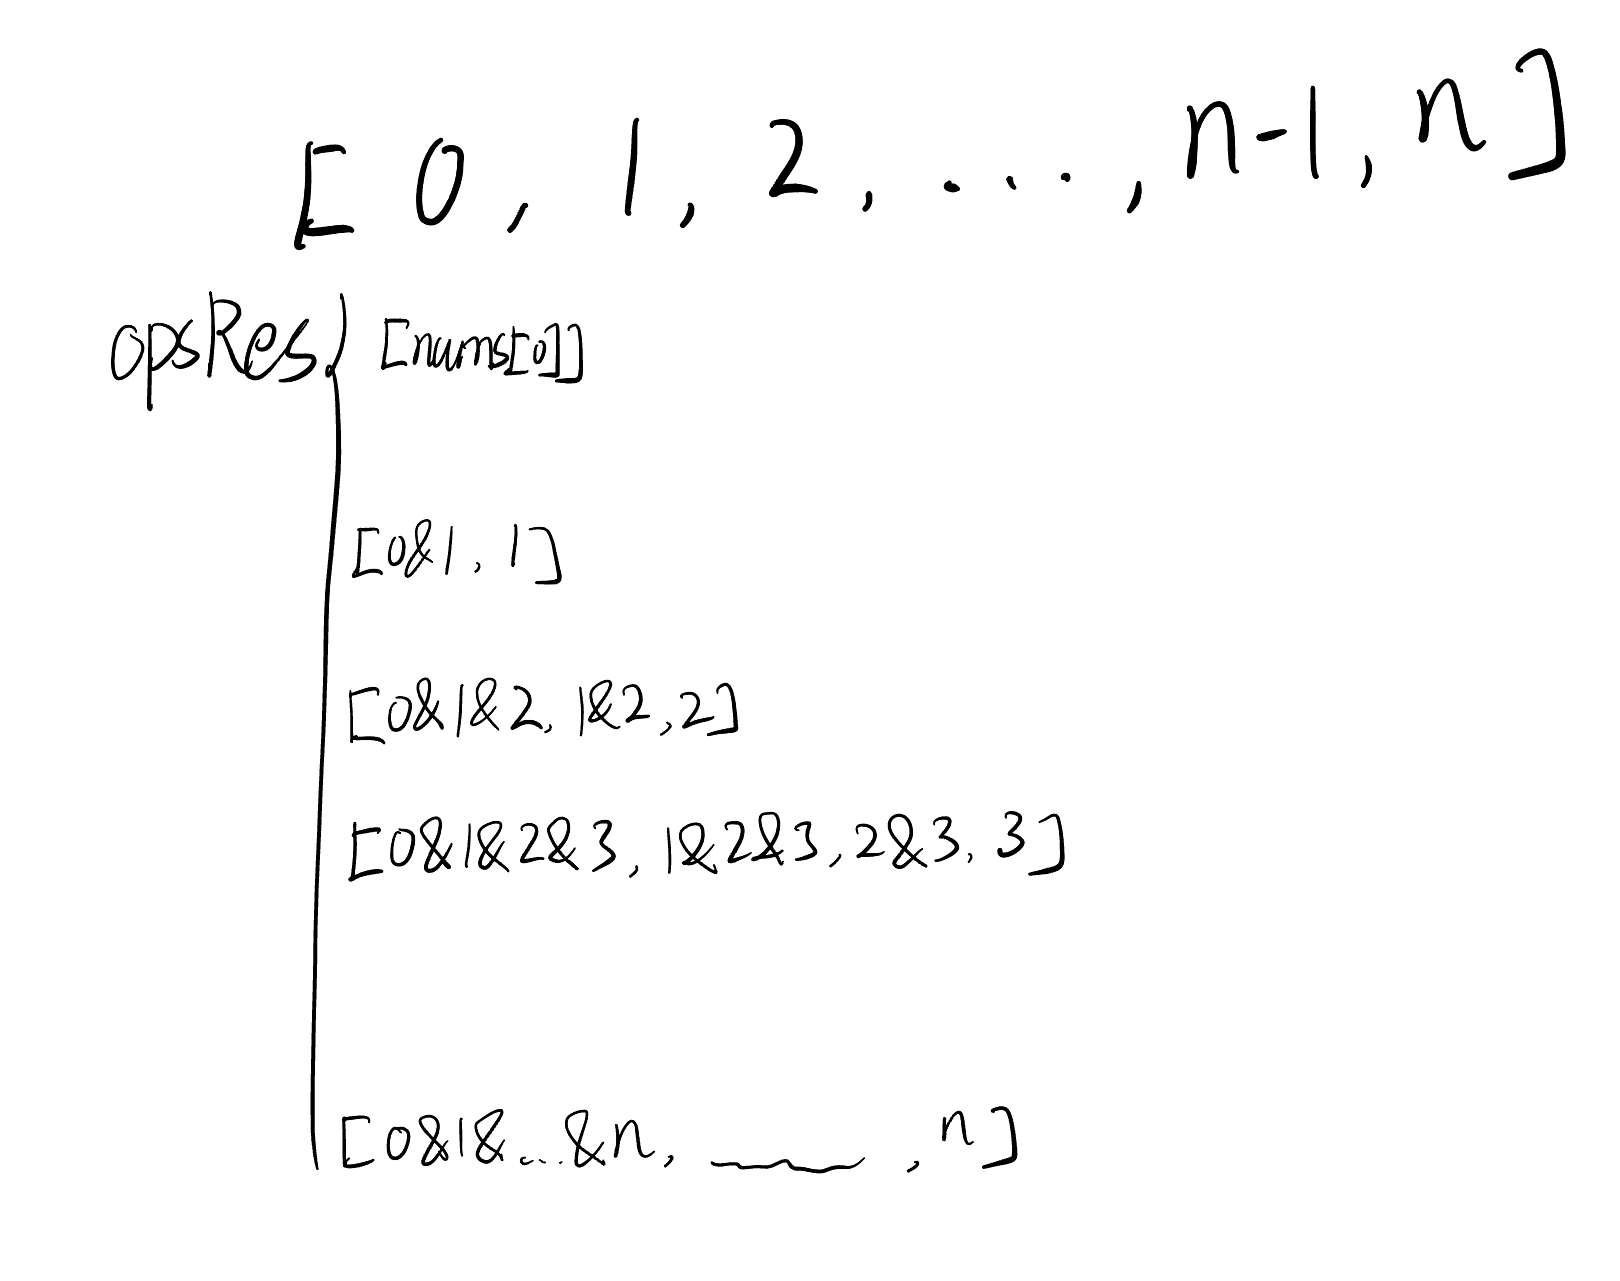 [ 0, 1, 2, ..., n-1, n ]
opsRes [nums[0]]
[0&1, 1]
[0&1&2, 1&2, 2]
[0&1&2&3, 1&2&3, 2&3, 3]
[0&1&...&n, ____, n]